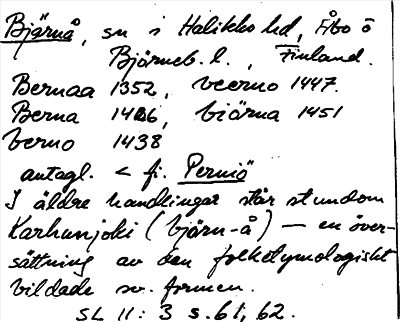 Bjärnå, sn i Halikko hd, Åbo o
Björneb. l., Finland.
Bernaa 1352, veerno 1447.
Berna 1406, biärna 1451
verno 1438
antagl. < fi. Perniö
I äldre handlingar står stundom
Karhunjoki (björn-å) — en över-
sättning av den folketymologiskt
bildade sv. formen.
SL 11: 3 s. 61, 62.